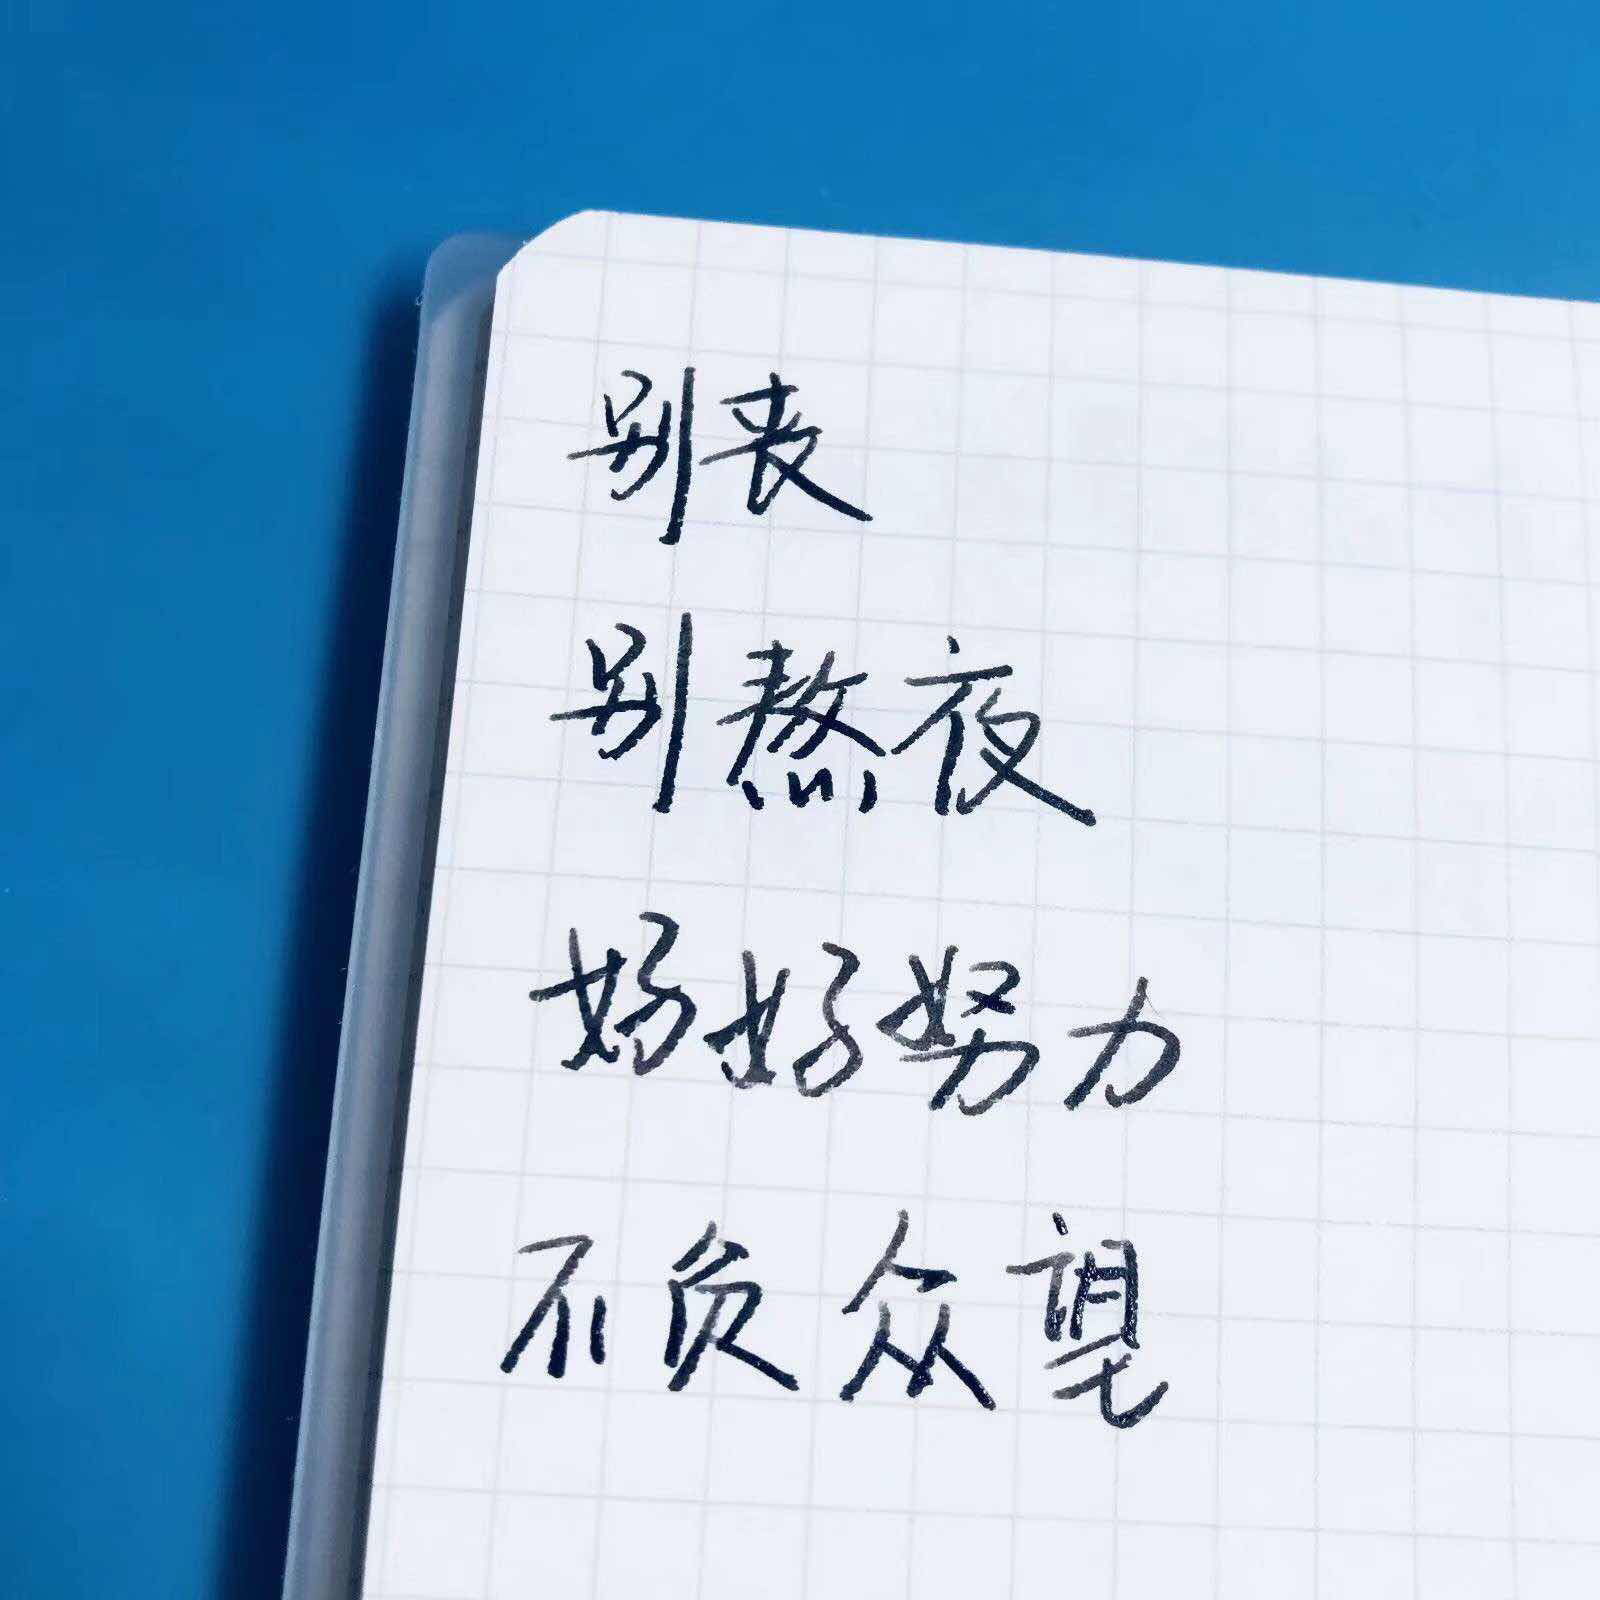 别丧
别熬夜
好好努力
不负众望